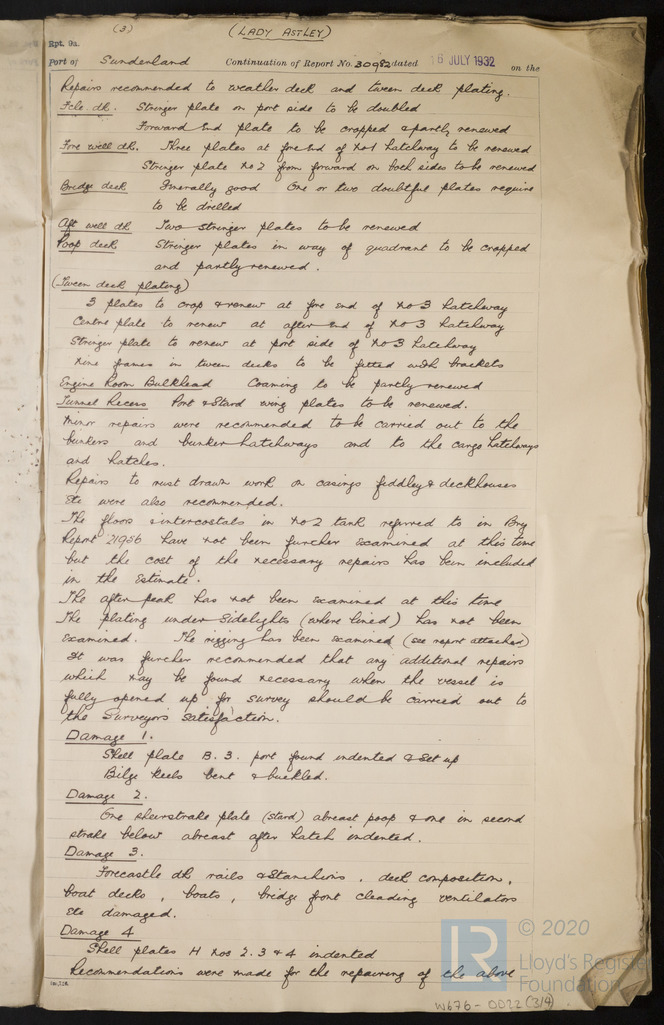 (3)
(LADY ASTLEY)
Rpt. 9a.
Port of Sunderland Continuation of Report No. 30982 dated 16 JULY 1932 on the
Repairs recommended to weather deck and tween deck plating.
Fcle dk. Stringer plate on port side to be doubled
Forward End plate to be cropped & partly renewed
Fore well dk. Three plates at fore end of No1 hatchway to be renewed
Stringer plate No 2 from forward on both sides to be renewed
Bridge deck Generally good One or two doubtful plates require
to be drilled
Aft well dk Two stringer plates to be renewed
Poop deck Stringer plates in way of quadrant to be cropped
and partly renewed.
(Tween deck plating)
3 plates to crop & renew at fore end of No 3 hatchway
Centre plate to renew at after end of No 3 hatchway
Stringer plate to renew at port side of No 3 hatchway
Nine frames in tween decks to be fitted with brackets
Engine Room Bulkhead Coaming to be partly renewed
Tunnel Recess Port & Stard wing plates to be renewed.
Minor repairs were recommended to be carried out to the
bunkers and bunker hatchways and to the cargo hatchways
and hatches.
Repairs to rust drawn work on casings fiddley & deckhouses
Etc were also recommended.
The floors & intercostals in No 2 tank referred to in Bry
Report 21956 have not been further examined at this time
but the cost of the necessary repairs has been included
in the Estimate.
The after peak has not been examined at this time
The plating under Sidelights (where lined) has not been
Examined. The rigging has been examined (see report attached)
It was further recommended that any additional repairs
which may be found necessary when the vessel is
fully opened up for survey should be carried out to
the Surveyors satisfaction.
Damage 1.
Shell plate B.3. port found indented & set up
Bilge keels bent & buckled.
Damage 2.
One sheerstrake plate (stard) abreast poop & one in second
strake below abreast after hatch indented.
Damage 3.
Forecastle dk rails & stanchions, deck composition,
boat decks, boats, bridge front cleading ventilators
Etc damaged.
Damage 4
Shell plates H Nos 2. 3 & 4 indented
Recommendations were made for the repairing of the above
© 2020
LR
Lloyd's Register
Foundation
W676-0022 (3/4)